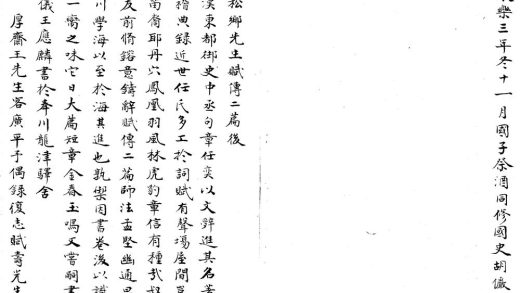 樂三年冬十一月國子祭酒同修國史胡儼
松鄉先生賦傳二篇後
漢東都御史中丞句章任奕以文辭進其名著
稽典錄近世任氏多工於詞賦有聲場屋間豈
南裔耶丹穴鳳凰羽風林虎豹章信有種哉
友前脩鎔意鑄辭賦傳二篇師法孟堅幽通思
川學海以至於海其進也孰禦因書卷後以識
一臠之味它日大篇短章金春玉鳴又嘗嗣書
儀王應麟書於奉川龍津驛舍
厚齋王先生客廣平予偶錄復志賦壽先生